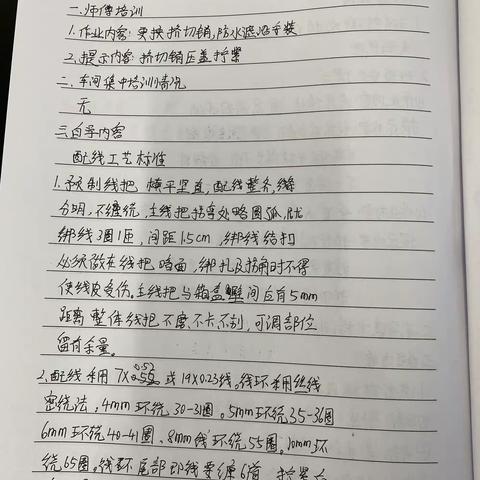 一.师傅培训
1.作业内容:更换挤切销,防水遮沿安装
2.提示内容:挤切销压盖拧紧
二、车间集中培训情况
无
三.自导内容
配线工艺标准
1.预制线把,横平竖直,配线整齐,线缕
分明,不缠绕,主线把拐弯处略圆弧,
绑线3圈1匝,间距1.5cm,绑线结扣
必须做在线把暗面,绑扎及拐角时不得
使线皮受伤。主线把与箱盒壁间应有5mm
距离 整体线把 不磨、不卡、不别,可调部位
留有余量。
2.配线采用7X0.52 或19X0.23线。线环采用丝线
密绕法,4mm环绕30-31圈。5mm环绕35-36圈
6mm环绕40-41圈、8mm线环绕55圈。10mm环
绕65圈。线环尾部即线要缠6道